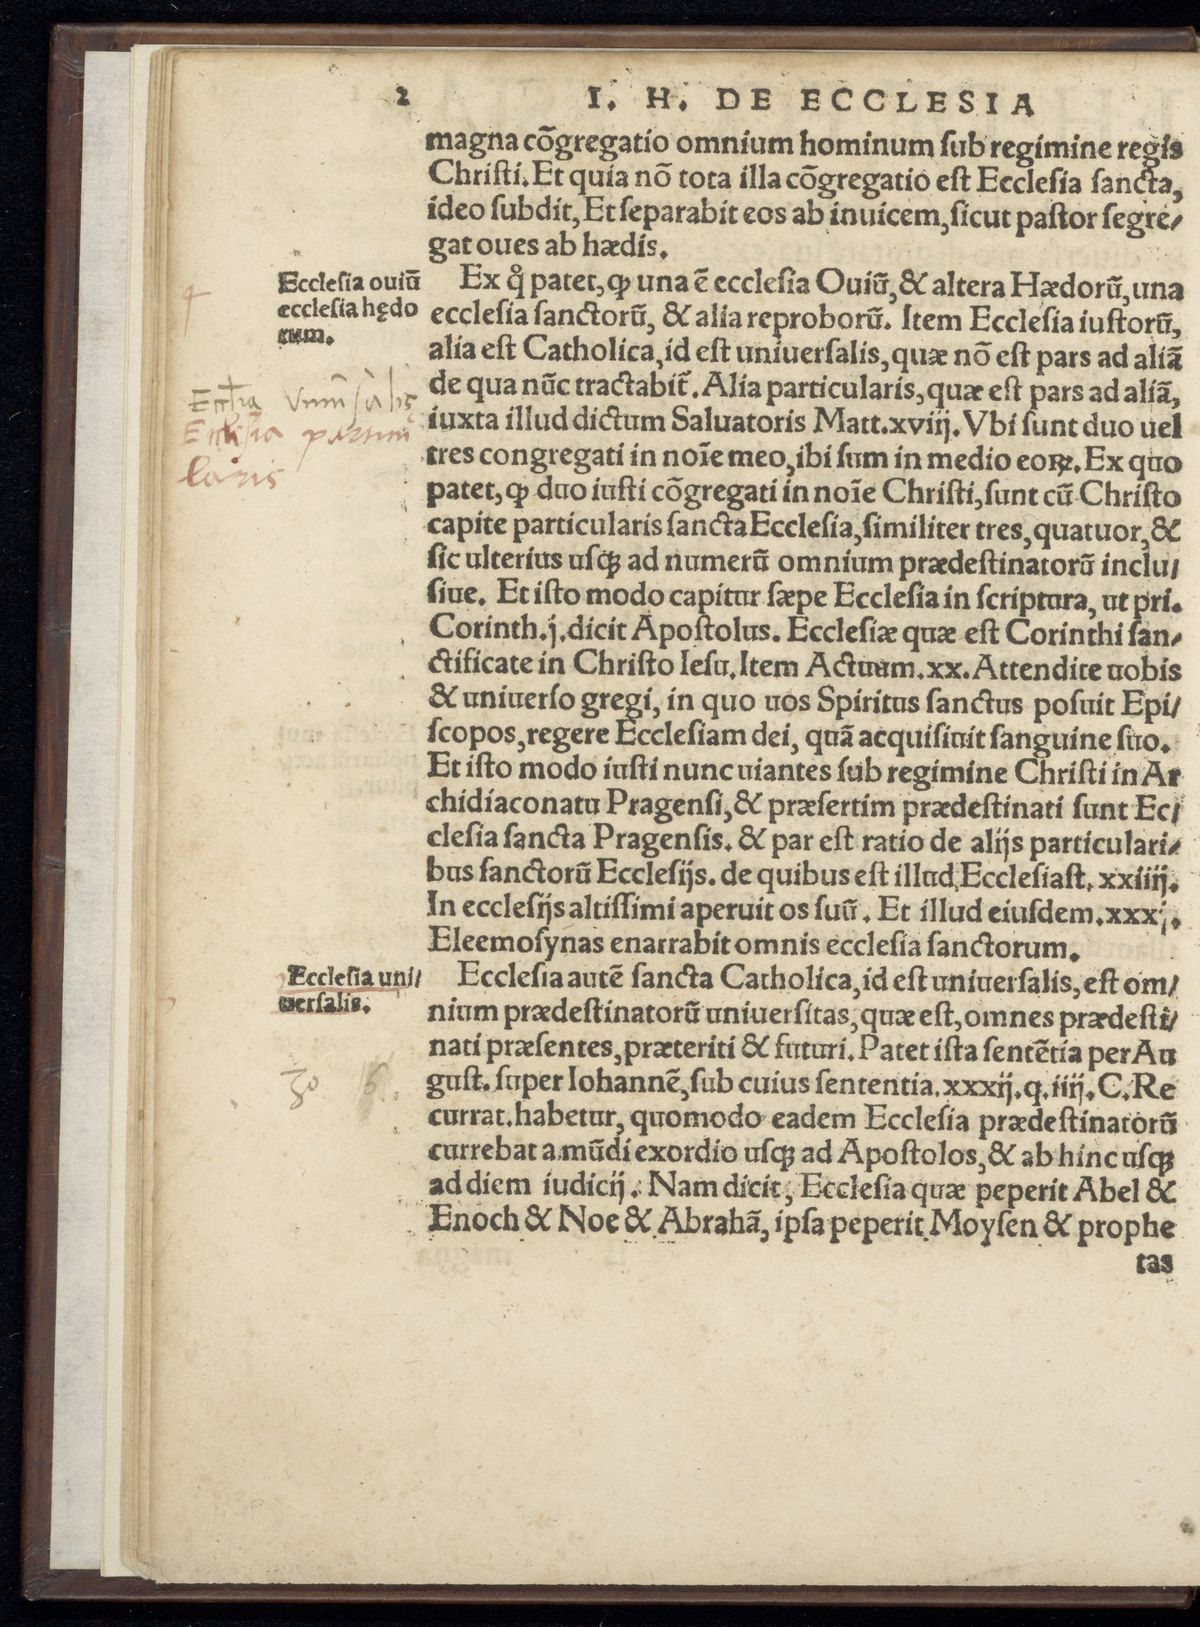 2
I. H. DE ECCLESIA
magna cõgregatio omnium hominum ſub regimine regis
Chriſti. Et quia nõ tota illa cõgregatio eſt Eccleſia ſancta,
ideo ſubdit, Et ſeparabit eos ab inuicem, ſicut paſtor ſegre/
gat oues ab hædis.
Eccleſia ouiũ
eccleſia hędo
rum.
Ex q̊ patet, ꝙ una ẽ eccleſia Ouiũ, & altera Hædorũ, una
eccleſia ſanctorũ, & alia reproborũ. Item Eccleſia iuſtorũ,
alia eſt Catholica, id eſt uniuerſalis, quæ nõ eſt pars ad aliã
de qua nũc tractabit̃. Alia particularis, quæ eſt pars ad aliã,
Eccłia vniũſalis
Eccleſia particu
laris
iuxta illud dictum Saluatoris Matt. xviij. Vbi ſunt duo uel
tres congregati in noĩe meo, ibi ſum in medio eoꝝ. Ex quo
patet, ꝙ duo iuſti cõgregati in noĩe Chriſti, ſunt cũ Chriſto
capite particularis ſancta Eccleſia, ſimiliter tres, quatuor, &
ſic ulterius uſqꝫ ad numerũ omnium prædeſtinatorũ inclu/
ſiue. Et iſto modo capitur ſæpe Eccleſia in ſcriptura, ut pri.
Corinth. j. dicit Apoſtolus. Eccleſiæ quæ eſt Corinthi ſan/
ctificate in Chriſto Ieſu. Item Actuum. xx. Attendite uobis
& uniuerſo gregi, in quo uos Spiritus ſanctus poſuit Epi/
ſcopos, regere Eccleſiam dei, quã acquiſiuit ſanguine ſuo.
Et iſto modo iuſti nunc uiantes ſub regimine Chriſti in Ar
chidiaconatu Pragenſi, & præſertim prædeſtinati ſunt Ec/
cleſia ſancta Pragenſis. & par eſt ratio de alijs particulari/
bus ſanctorũ Eccleſijs. de quibus eſt illud Eccleſiaſt. xxiiij.
In eccleſijs altiſſimi aperuit os ſuũ. Et illud eiuſdem. xxxj.
Eleemoſynas enarrabit omnis eccleſia ſanctorum.
Eccleſia uni/
uerſalis.
Eccleſia autẽ ſancta Catholica, id eſt uniuerſalis, eſt om/
nium prædeſtinatorũ uniuerſitas, quæ eſt, omnes prædeſti/
nati præſentes, præteriti & futuri. Patet iſta ſentẽtia per Au
guſt. ſuper Iohannẽ, ſub cuius ſententia. xxxij. q. iiij. C. Re
currat. habetur, quomodo eadem Eccleſia prædeſtinatorũ
currebat a mũdi exordio uſqꝫ ad Apoſtolos, & ab hinc uſqꝫ
ad diem iudicij. Nam dicit, Eccleſia quæ peperit Abel &
Enoch & Noe & Abrahã, ipſa peperit Moyſen & prophe
tas